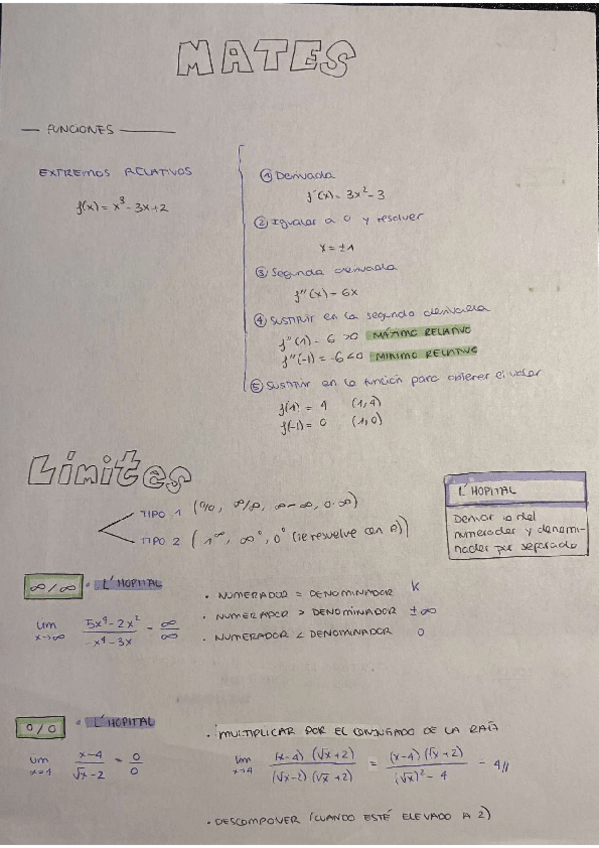 MATES
FUNCIONES
EXTREMOS RELATIVOS
f(x) = x³ - 3x + 2
① Derivada
f'(x) = 3x² - 3
② Igualar a 0 y resolver
x = ±1
③ Segunda derivada
f''(x) - 6x
④ SUSTITUIR en la segunda derivada
f''(1) - 6 > 0 MÁXIMO RELATIVO
f''(-1) = -6 < 0 MINIMO RELATIVO
⑤ SUSTITUIR en la función para obtener el valor
f(1) = 4 (1,4)
f(-1) = 0 (1,0)
Límites
TIPO 1 (0/0, ∞/∞, ∞-∞, 0·∞)
TIPO 2 (1^∞, ∞⁰, 0⁰ (se resuelve con A))
L'HOPITAL
Derivar lo del
numerador y denomi-
nador por separado
∞/∞ · L'HOPITAL
lim x→∞ (5x⁴ - 2x²)/(-x⁴ - 3x) - ∞/∞
· NUMERADOR = DENOMINADOR K
· NUMERADOR > DENOMINADOR ±∞
· NUMERADOR < DENOMINADOR 0
0/0 · L'HOPITAL
lim x→4 (x-4)/(√x - 2) = 0/0
· MULTIPLICAR POR EL CONJUGADO DE LA RAÍZ
lim x→4 (x-4)(√x+2)/(√x-2)(√x+2) = (x-4)(√x+2)/(√x)² - 4 - 4//
· DESCOMPONER (CUANDO ESTÉ ELEVADO A 2)